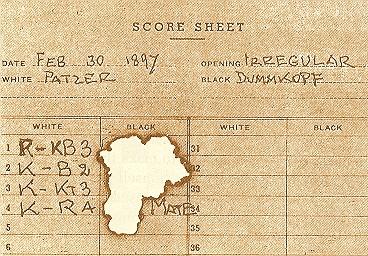 SCORE SHEET
DATE FEB 30 1897 OPENING IRREGULAR
WHITE PATZER BLACK DUMMKOPF
WHITE BLACK WHITE BLACK
1 P-KB3 31
2 K-B2
3 K-KT3 33
4 K-R4 MATE
5 35
6 36